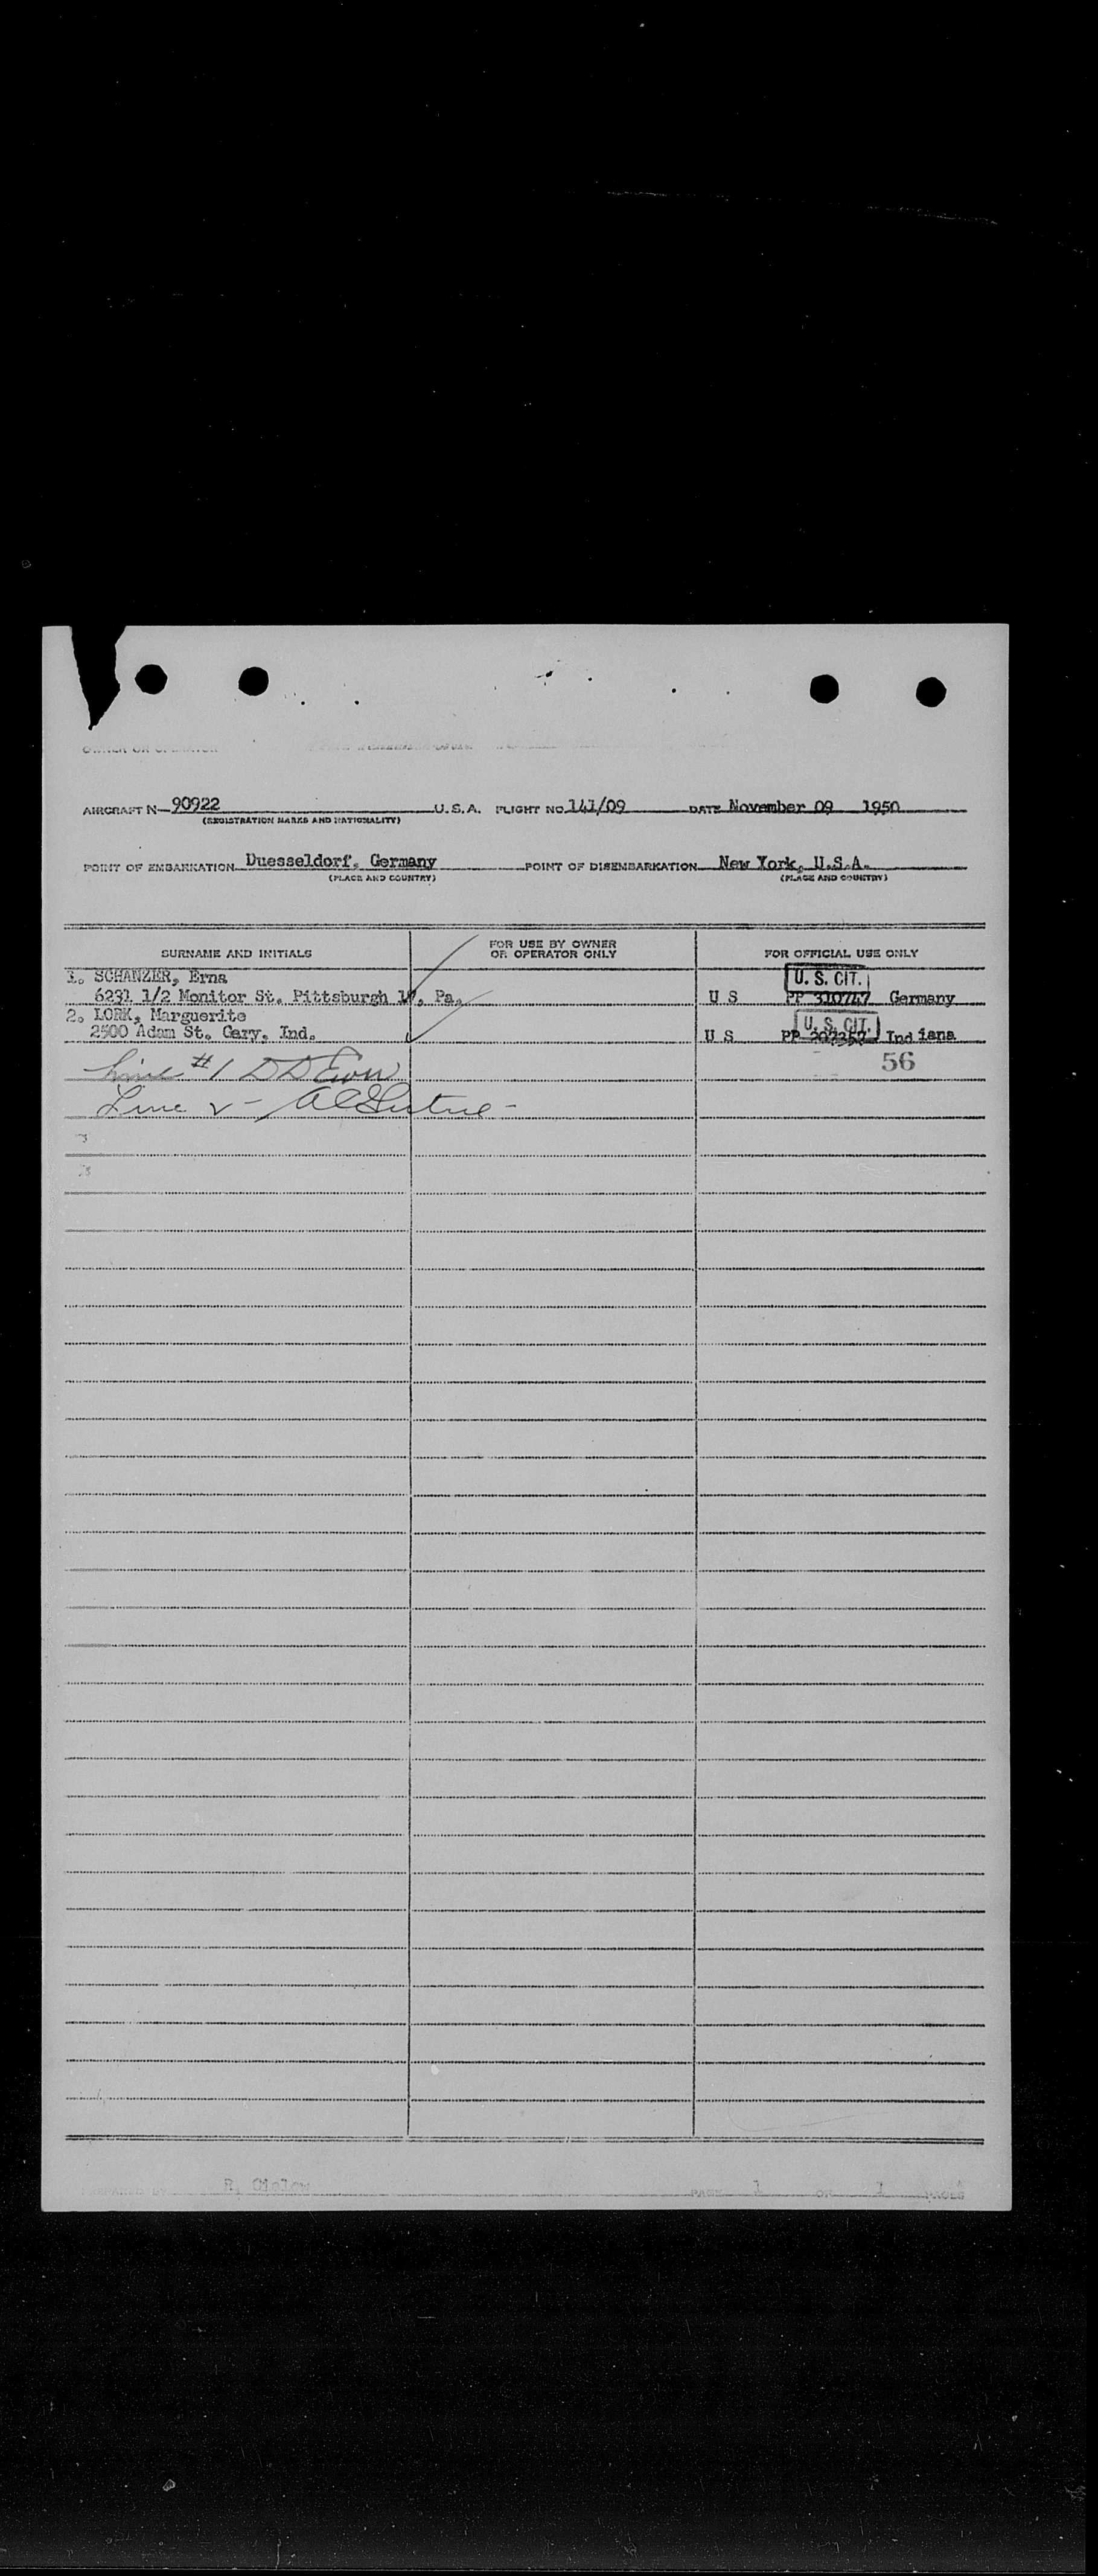 OWNER OR OPERATOR
AIRCRAFT N- 90922 U.S.A. FLIGHT NO. 141/09 DATE November 09 1950
(REGISTRATION MARKS AND NATIONALITY)
POINT OF EMBARKATION Duesseldorf, Germany POINT OF DISEMBARKATION New York, U.S.A.
(PLACE AND COUNTRY) (PLACE AND COUNTRY)
SURNAME AND INITIALS FOR USE BY OWNER OR OPERATOR ONLY FOR OFFICIAL USE ONLY
1. SCHANZER, Erna U. S. CIT.
6231 1/2 Monitor St. Pittsburgh Pa. U S PP 310747 Germany
2. LORK, Marguerite U. S. CIT.
2500 Adam St. Gary, Ind. U S PP Indiana
56
Line #1 D D
Line 2 -
PREPARED BY R. PAGE 1 OF 1 PAGES